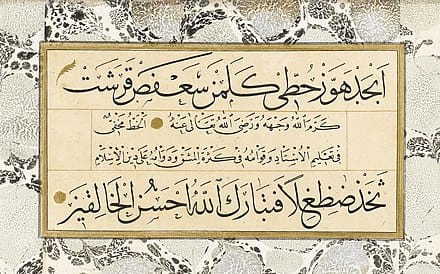 ابجد هوز حطي كلمن سعفص قرشت
كرم الله وجهه ورضي الله تعالى عنه الخط مخفي
في تعليم الاستاد وقوامه في كثرة المشق ودوامه على دين الاسلام
ثخذ ضظغلا فتبارك الله احسن الخالقين